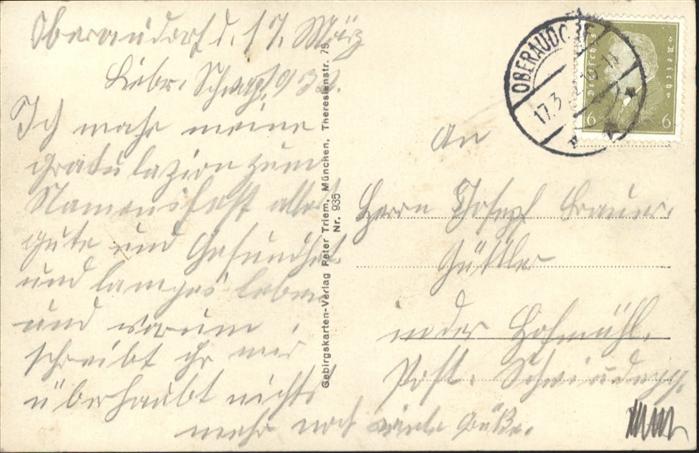 Oberaudorf d. 17. März
Liebr. Schwag. 1932.
Ich mache meine
gratulazion zum
Namensfest alles
gute und Gesundheit
und langes leben
und warum
schreibt ihr mir
überhaubt nichts
mehr noch viele Grüße.
Gebirgskarten-Verlag Peter Triem, München, Theresienstr. 75
Nr. 935
OBERAUDORF
17.3.
Deutsches Reich
6 6
An
Herrn Josef Brauer
Gütler
in der Hofmühl.
Post.